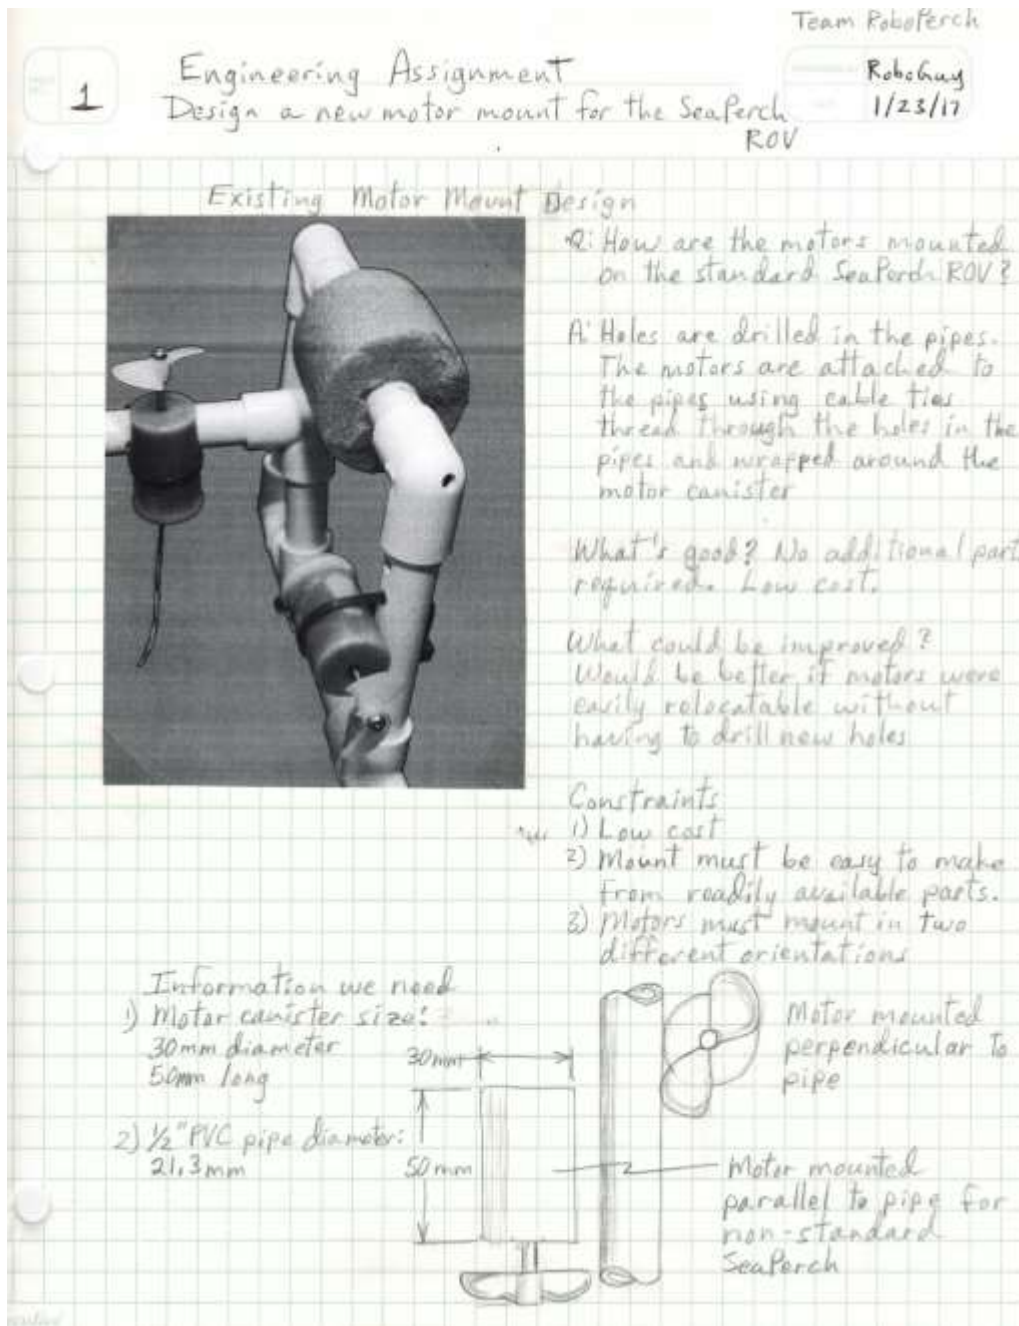 Team RoboPerch
1
Engineering Assignment
Design a new motor mount for the SeaPerch
ROV
RoboGuy
1/23/17
Existing Motor Mount Design
Q: How are the motors mounted
on the standard SeaPerch ROV?
A: Holes are drilled in the pipes.
The motors are attached to
the pipes using cable ties
thread through the holes in the
pipes and wrapped around the
motor canister
What's good? No additional part
required. Low cost.
What could be improved?
Would be better if motors were
easily relocatable without
having to drill new holes
Constraints
1) Low cost
2) Mount must be easy to make
from readily available parts.
3) Motors must mount in two
different orientations
Information we need
1) Motor canister size:
30mm diameter
50mm long
2) 1/2" PVC pipe diameter:
21.3mm
30mm
50mm
Motor mounted
perpendicular to
pipe
Motor mounted
parallel to pipe for
non-standard
SeaPerch